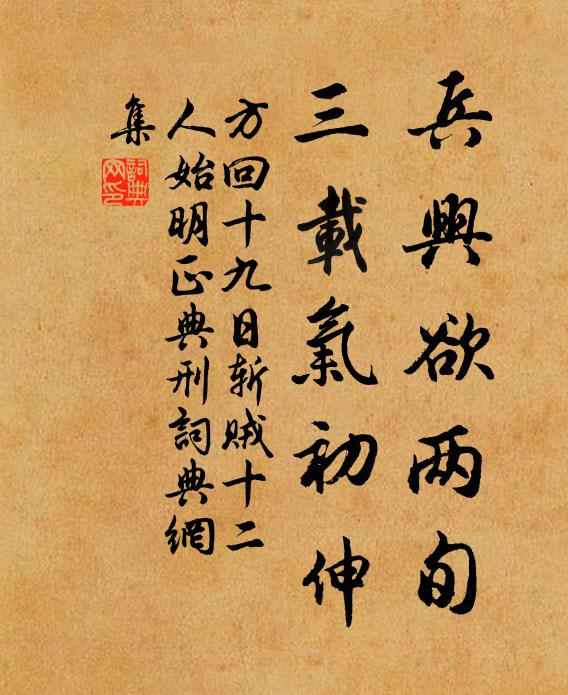 兵興欲两旬
三載氣初伸
方回十九日斬賊十二
人始明正典刑詞典網
集
詞典
网印